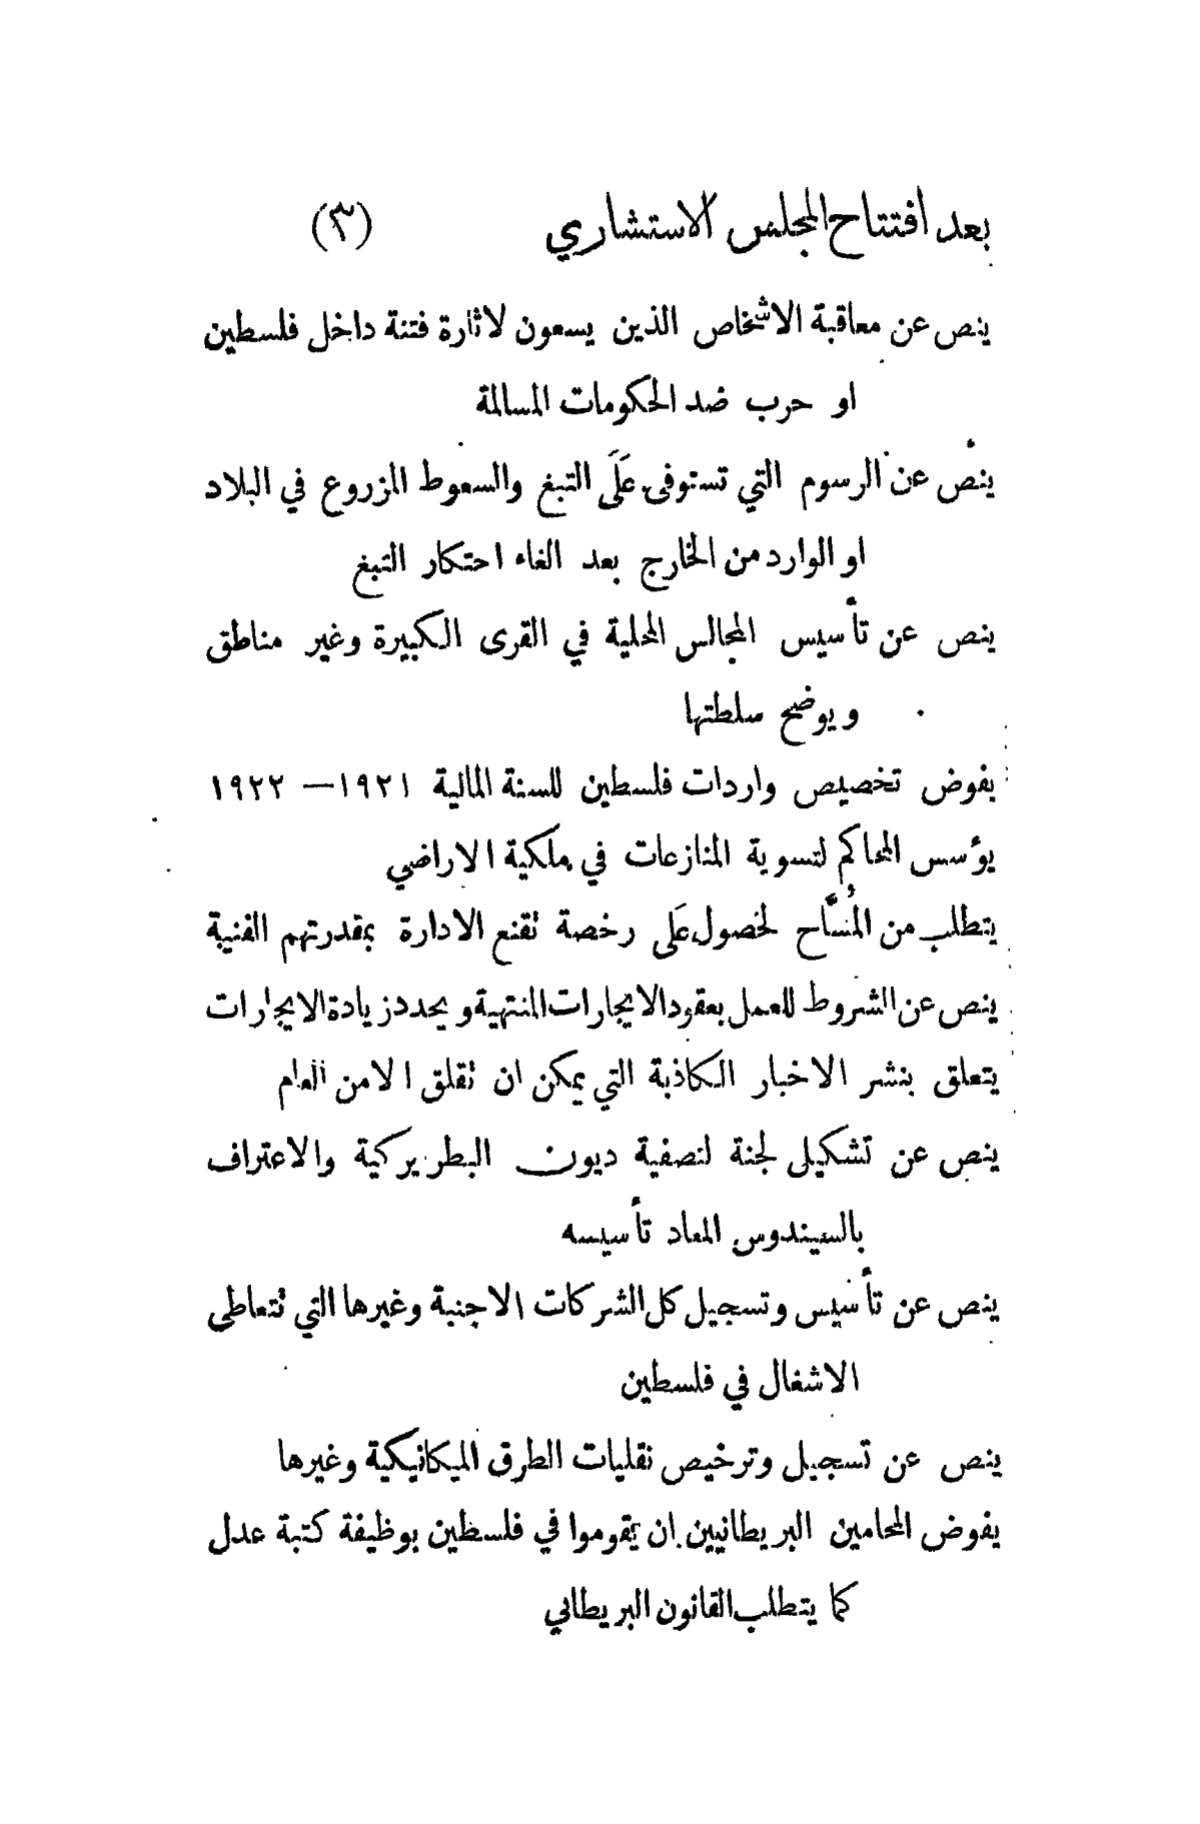 بعد افتتاح المجلس الاستشاري (٣)
ينص عن معاقبة الاشخاص الذين يسعون لاثارة فتنة داخل فلسطين
او حرب ضد الحكومات المسالمة
ينص عن الرسوم التي تستوفى عَلَى التبغ والسعوط المزروع في البلاد
او الوارد من الخارج بعد الغاء احتكار التبغ
ينص عن تأسيس المجالس المحلية في القرى الكبيرة وغير مناطق
ويوضح سلطتها
يفوض تخصيص واردات فلسطين للسنة المالية ١٩٢١ — ١٩٢٢
يؤسس المحاكم لتسوية المنازعات في ملكية الاراضي
يتطلب من المُسَّاح لحصول عَلى رخصة تقنع الادارة بمقدرتهم الفنية
ينص عن الشروط للعمل بعقود الايجارات المنتهية ويحدد زيادة الايجارات
يتعلق بنشر الاخبار الكاذبة التي يمكن ان تقلق الامن العام
ينص عن تشكيل لجنة لتصفية ديون البطريركية والاعتراف
بالسيندوس المعاد تأسيسه
ينص عن تأسيس وتسجيل كل الشركات الاجنبية وغيرها التي تتعاطى
الاشغال في فلسطين
ينص عن تسجيل وترخيص نقليات الطرق الميكانيكية وغيرها
يفوض المحامين البريطانيين ان يقوموا في فلسطين بوظيفة كتبة عدل
كما يتطلب القانون البريطاني